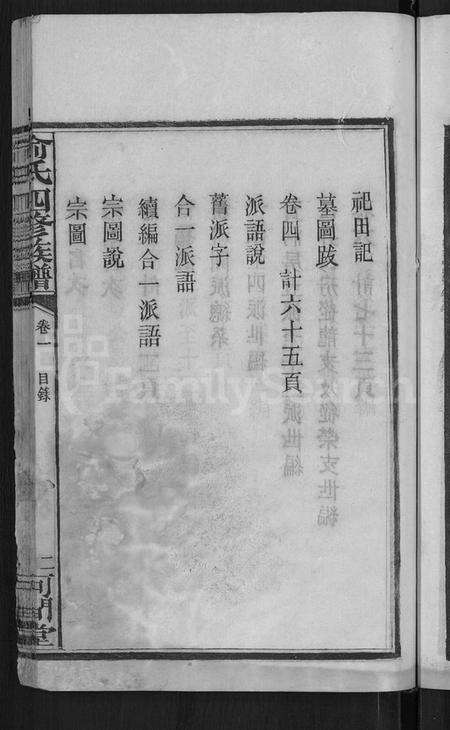 祀田記
墓圖跋
卷四 計六十五頁
派語說
舊派字
合一派語
續編合一派語
宗圖說
宗圖
俞氏四修族譜
卷一
目錄
二
河間堂
FamilySearch